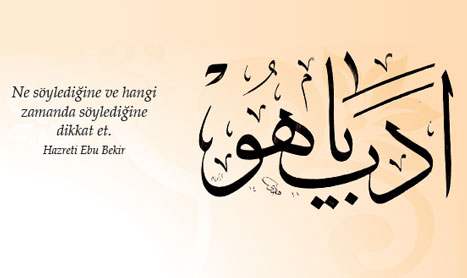 Ne söylediğine ve hangi
zamanda söylediğine
dikkat et.
Hazreti Ebu Bekir
ادب يا هو